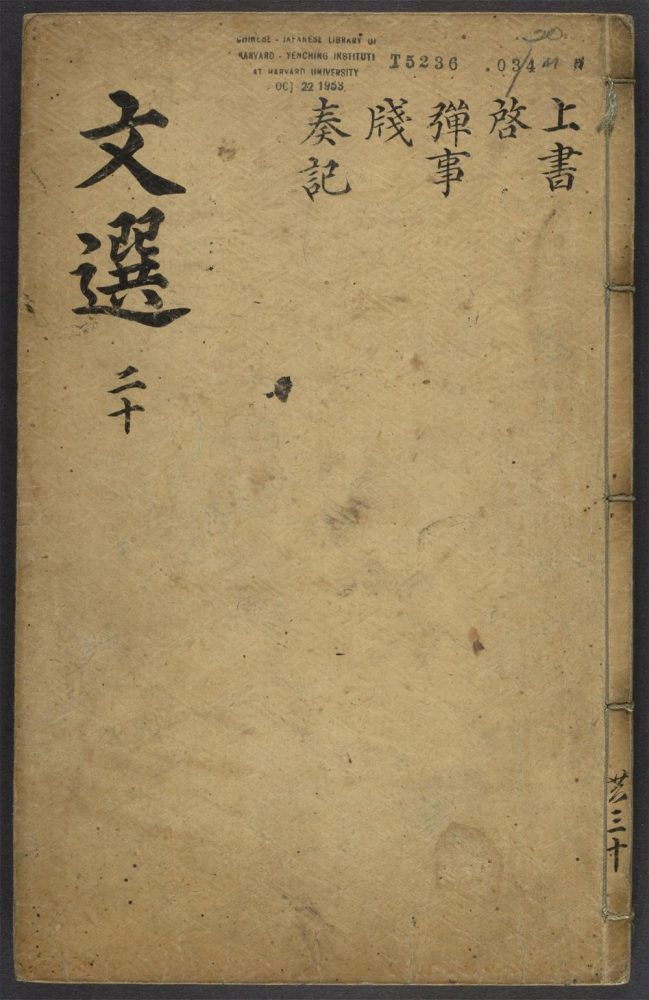 CHINESE - JAPANESE LIBRARY OF
HARVARD - YENCHING INSTITUTE
AT HARVARD UNIVERSITY
OCT 22 1953
T5236 .034
20.
上書
啓
彈事
牋
奏記
文選
二十
共三十